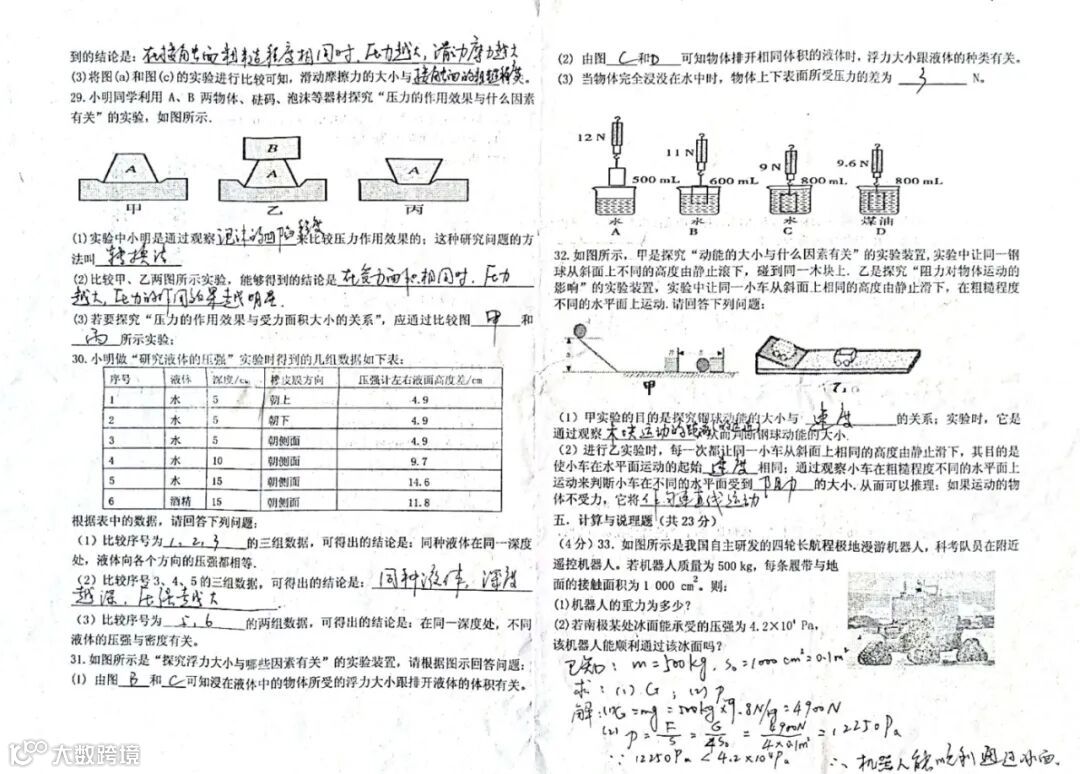 到的结论是：在接触面粗糙程度相同时，压力越大，滑动摩擦力越大
(3)将图(a)和图(c)的实验进行比较可知，滑动摩擦力的大小与接触面的粗糙程度。
29.小明同学利用 A、B 两物体、砝码、泡沫等器材探究“压力的作用效果与什么因素
有关”的实验，如图所示.
A
甲
B
A
乙
A
丙
(1)实验中小明是通过观察 泡沫的凹陷程度 来比较压力作用效果的；这种研究问题的方
法叫 转换法
(2)比较甲、乙两图所示实验，能够得到的结论是 在受力面积相同时，压力
越大，压力的作用效果越明显.
(3)若要探究“压力的作用效果与受力面积大小的关系”，应通过比较图 甲 和
丙 所示实验；
30.小明做“研究液体的压强”实验时得到的几组数据如下表：
序号 液体 深度/cm 橡皮膜方向 压强计左右液面高度差/cm
1 水 5 朝上 4.9
2 水 5 朝下 4.9
3 水 5 朝侧面 4.9
4 水 10 朝侧面 9.7
5 水 15 朝侧面 14.6
6 酒精 15 朝侧面 11.8
根据表中的数据，请回答下列问题：
(1）比较序号为 1,2,3 的三组数据，可得出的结论是：同种液体在同一深度
处，液体向各个方向的压强都相等.
(2）比较序号 3、4、5的三组数据，可得出的结论是： 同种液体，深度
越深，压强越大.
(3）比较序号为 5,6 的两组数据，可得出的结论是：在同一深度处，不同
液体的压强与密度有关。
31.如图所示是“探究浮力大小与哪些因素有关”的实验装置，请根据图示回答问题：
(1) 由图 B 和 C 可知浸在液体中的物体所受的浮力大小跟排开液体的体积有关。
(2) 由图 C 和 D 可知物体排开相同体积的液体时，浮力大小跟液体的种类有关。
(3) 当物体完全浸没在水中时，物体上下表面所受压力的差为 3 N。
12 N
500 mL
水
A
11 N
600 mL
水
B
9 N
800 mL
水
C
9.6 N
800 mL
煤油
D
32.如图所示，甲是探究“动能的大小与什么因素有关”的实验装置,实验中让同一钢
球从斜面上不同的高度由静止滚下，碰到同一木块上．乙是探究“阻力对物体运动的
影响”的实验装置，实验中让同一小车从斜面上相同的高度由静止滑下，在粗糙程度
不同的水平面上运动.请回答下列问题：
甲
乙
(1) 甲实验的目的是探究钢球动能的大小与 速度 的关系；实验时，它是
通过观察 木块运动的距离 从而判断钢球动能的大小.
(2) 进行乙实验时，每一次都让同一小车从斜面上相同的高度由静止滑下，其目的是
使小车在水平面运动的起始 速度 相同；通过观察小车在粗糙程度不同的水平面上
运动来判断小车在不同的水平面受到 阻力 的大小.从而可以推理：如果运动的物
体不受力，它将 作匀速直线运动
五．计算与说理题（共 23 分）
(4 分) 33. 如图所示是我国自主研发的四轮长航程极地漫游机器人，科考队员在附近
遥控机器人。若机器人质量为 500 kg，每条履带与地
面的接触面积为 1 000 cm²。则：
(1)机器人的重力为多少？
(2)若南极某处冰面能承受的压强为 4.2×10⁴ Pa，
该机器人能顺利通过该冰面吗？
已知：m=500kg, S₀=1000cm²=0.1m²
求：(1) G ; (2) P
解：(1)G=mg=500kg×9.8N/kg=4900N
(2) P=F/S=G/4S₀=4900N/4×0.1m²=12250Pa
∵ 12250Pa<4.2×10⁴Pa ∴机器人能顺利通过冰面.
大数跨境